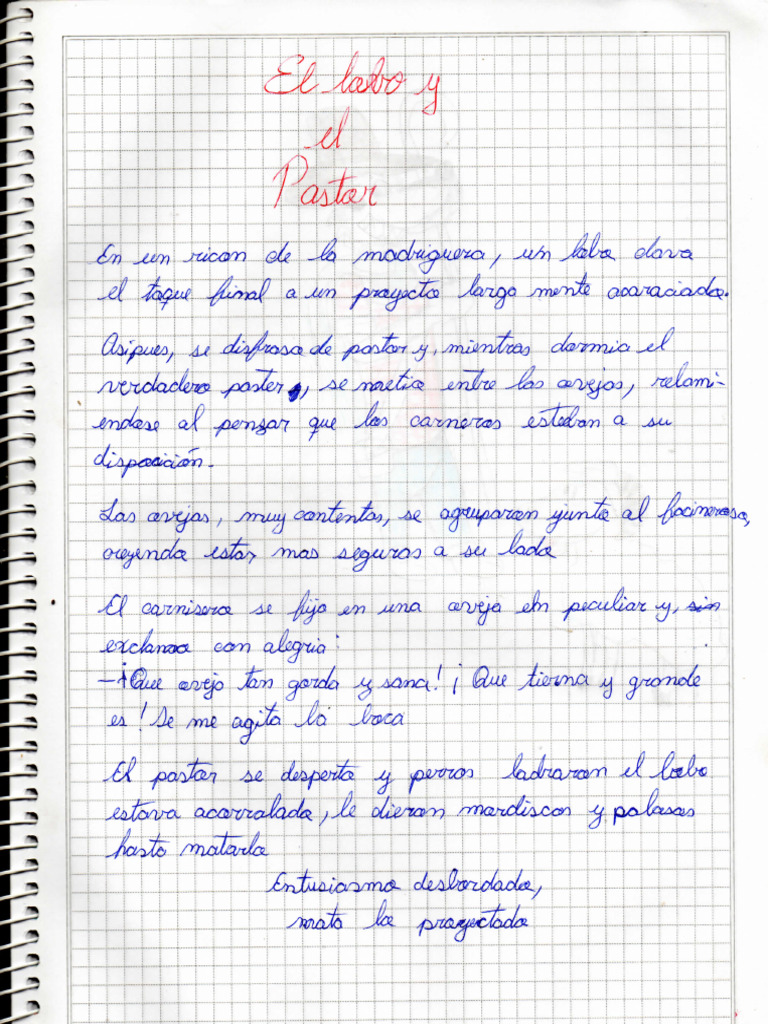 El lobo y
el
Pastor
En un ricon de la madriguera, un lobo dava
el toque final a un proyecto largo mente acaraciado.
Asipues, se disfrasa de pastor y, mientras dormia el
verdadero pastor, se metio entre las ovejas, relami-
endose al pensar que los carneros estaban a su
disposición.
Las ovejas, muy contentas, se agruparon junto al facineroso,
creyendo estar mas seguras a su lado
El carnisero se fijo en una oveja en peculiar y, sin
exclamo con alegria:
-¡Que oveja tan gorda y sana! ¡Que tierna y grande
es! Se me agita la boca
El pastor se desperto y perros ladraron el lobo
estava acorralado, le dieron mordiscos y palasos
hasta matarlo
Entusiasmo desbordado,
mato lo proyectado